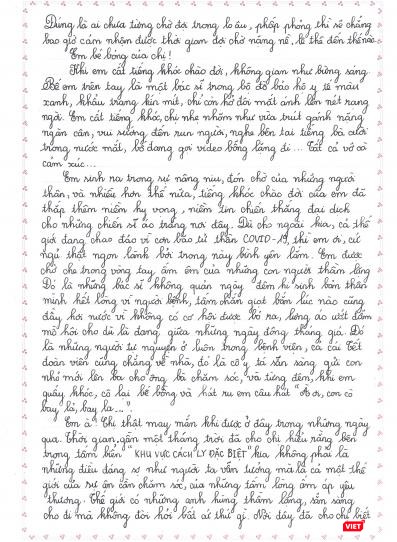 Đúng là ai chưa từng chờ đợi trong lo âu, phấp phỏng thì sẽ chẳng
bao giờ cảm nhận được thời gian đợi chờ nặng nề, lê thê đến thế nào.
Em bé bỏng của chị!
Khi em cất tiếng khóc chào đời, không gian như bừng sáng.
Bế em trên tay là một bác sĩ trong bộ đồ bảo hộ y tế màu
xanh, khẩu trang kín mít, chỉ còn hở đôi mắt ánh lên nét rạng
ngời. Em cất tiếng khóc, chị nhẹ nhõm như vừa trút gánh nặng
ngàn cân, vui sướng đến run người, nghe bên tai tiếng bà cười
trong nước mắt, bố đang gọi video bỗng lặng đi... Tất cả vỡ oà
cảm xúc...
Em sinh ra trong sự nâng niu, đón chờ của những người
thân, và nhiều hơn thế nữa, tiếng khóc chào đời của em đã
thắp thêm niềm hy vọng, niềm tin chiến thắng đại dịch
cho những chiến sĩ áo trắng nơi đây. Dù cho ngoài kia, cả thế
giới đang chao đảo vì cơn bão tử thần COVID-19, thì em ơi, cứ
ngủ thật ngon lành bởi trong này bình yên lắm. Em được
chở che trong vòng tay, ấm êm của những con người thầm lặng
Đó là những bác sĩ không quản ngày đêm hi sinh bản thân
mình hết lòng vì người bệnh, tấm phản giọt bắn lúc nào cũng
đầy hơi nước vì không có cơ hội được bỏ ra, lưng áo ướt đẫm
mồ hôi cho dù là đang giữa những ngày đông tháng giá. Đó
là những người tự nguyện ở luôn trong bệnh viện, cả cái Tết
đoàn viên cũng chẳng về nhà, đó là cô y tá sẵn sàng gửi con
nhỏ mới lên ba cho ông bà chăm sóc, và từng đêm, khi em
quấy khóc, cô lại bế bồng và hát ru em câu hát "À ơi, con cò
bay lả, bay la...".
Em à! Chị thật may mắn khi được ở đây trong những ngày
qua. Thời gian gần một tháng trời đã cho chị hiểu rằng bên
trong tấm biển "KHU VỰC CÁCH LY ĐẶC BIỆT" kia không phải là
những điều đáng sợ như người ta vẫn tưởng mà là cả một thế
giới của sự ân cần chăm sóc, của những tấm lòng ấm áp yêu
thương. Thế giới có những anh hùng thầm lặng, sẵn sàng
cho đi mà không đòi hỏi bất cứ thứ gì. Nơi đây đã cho chị biết
VIET